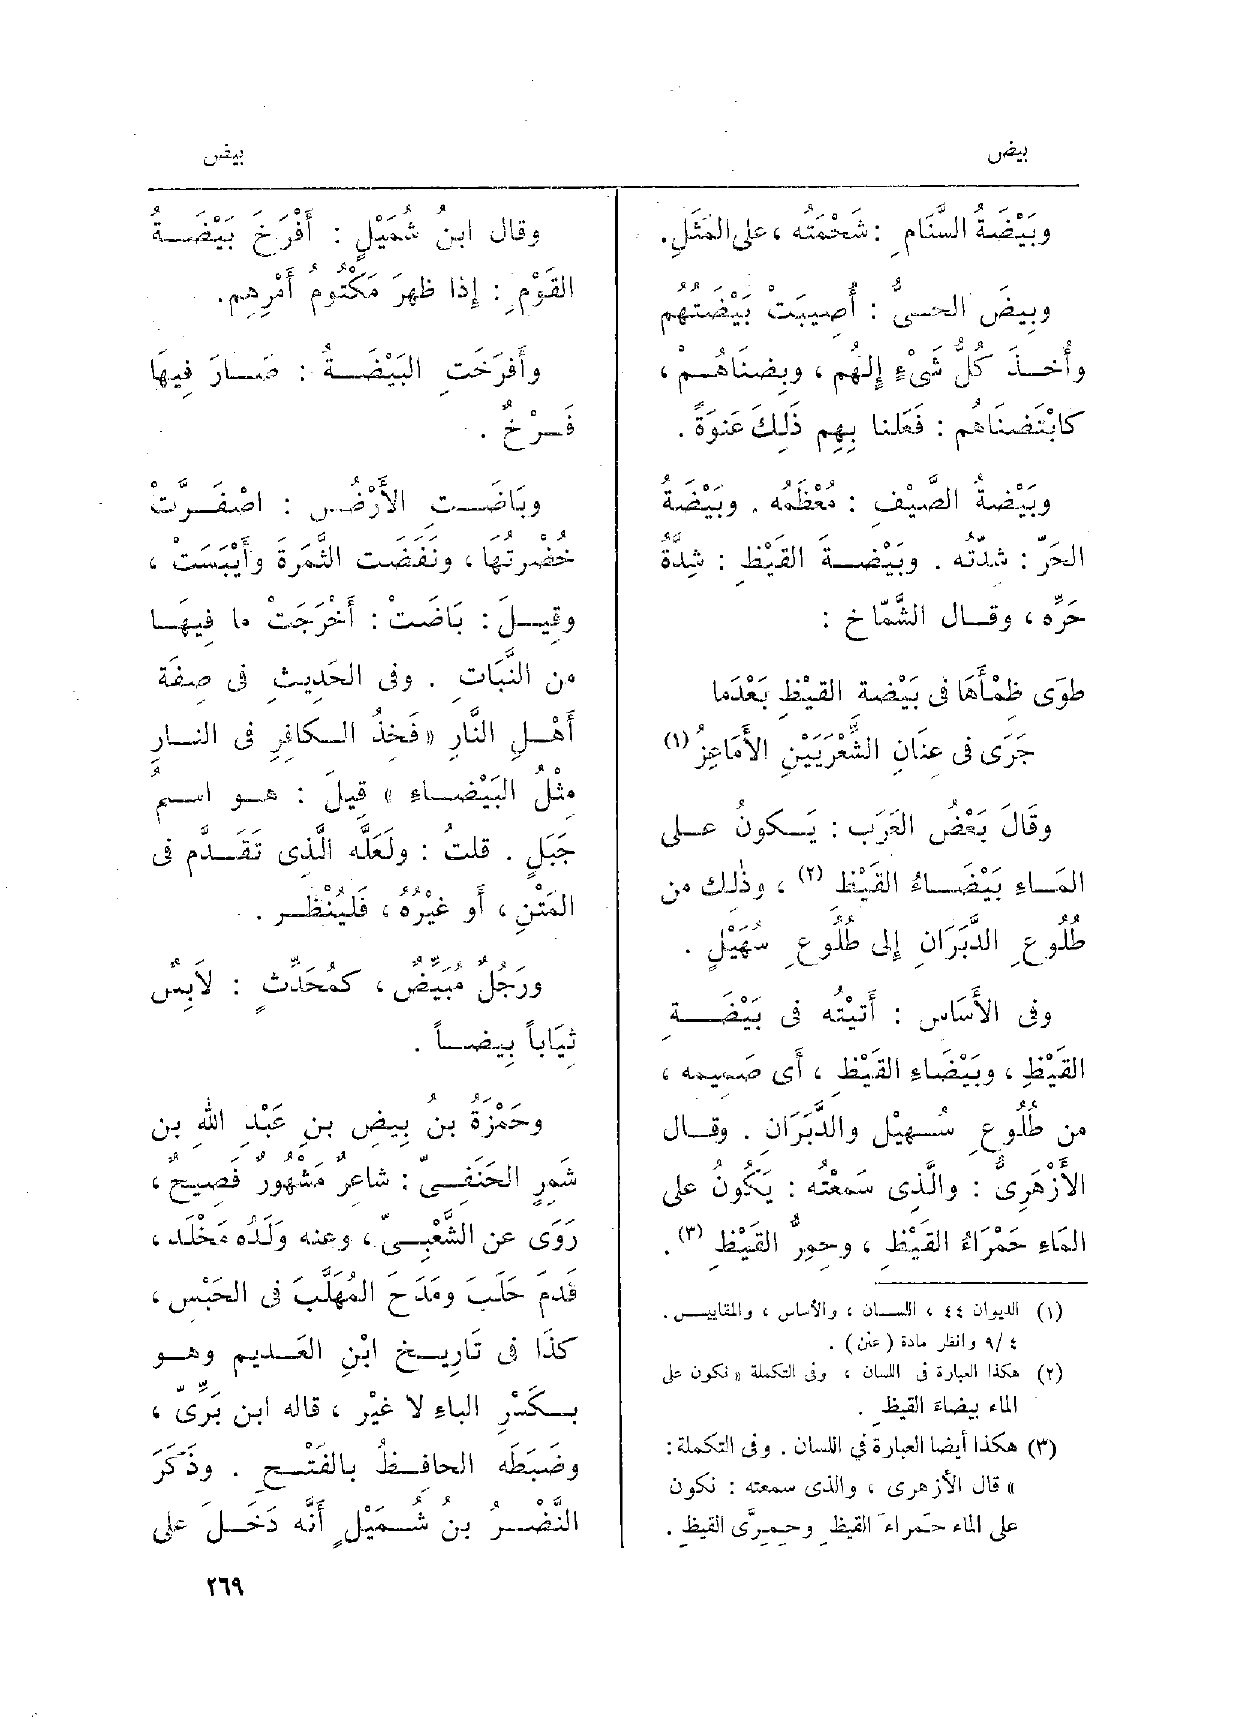 بيض
بيض
وبَيْضَةُ السَّنَامِ : شَحْمَتُه ، على المَثَلِ.
وبِيضَ الحَــىُّ : أُصِيبَتْ بَيْضَتُهُم
وأُخِــذَ كُلُّ شَىْءٍ لَهُم ، وبِضْنَاهُــمْ ،
كابْتَضْنَاهُم : فَعَلْنا بِهِم ذَلِكَ عَنْوَةً .
وبَيْضَةُ الصَّيْفِ : مُعْظَمُه . وبَيْضَةُ
الحَرِّ : شِدَّتُه . وبَيْضَــةُ القَيْظِ : شِدَّةُ
حَرِّه ، وقــال الشَّمَّاخ :
طَوَى ظِمْأَهَا فى بَيْضَة القَيْظِ بَعْدَما
جَرَى فى عِنَانِ الشِّعْرَيَيْنِ الأَمَاعِزُ (١)
وقَالَ بَعْضُ العَرَب : يَــكونُ عــلى
المَــاءِ بَيْضَــاءُ القَيْظِ (٢) ، وذٰلك من
طُلُوعِ الدَّبَرَانِ إلى طُلُوعِ سُهَيْلٍ .
وفى الأَسَاس : أَتَيْتُه فى بَيْضَــةِ
القَيْظِ ، وبَيْضَاءِ القَيْظِ ، أَى صَمِيمِه ،
من طُلُوعِ سُــهَيْلٍ والدَّبَرَانِ . وقــال
الأَزْهَرِىُّ : والَّذِى سَمِعْتُه : يَكُونُ على
المَاءِ حَمْرَاءُ القَيْظِ ، وحِمِرُّ القَيْظِ (٣) .
(١) الديوان ٤٤ ، اللســان ، والأساس ، والمقاييــس .
٤ /٩ وانظر مادة ( عنن ) .
(٢) هكذا العبارة فى اللسان ، وفى التكملة « نكون على
الماء بيضاءَ القيظِ .
(٣) هكذا أيضا العبارة في اللسان . وفى التكملة :
« قال الأزهرى ، والذى سمعته : نكون
على الماء حَمراءَ القيظِ وحِمِرَّى القيظِ .
وقال ابنُ شُمَيْلٍ : أَفْرَخَ بَيْضَــةُ
القَوْمِ : إذا ظهرَ مَكْتُومُ أَمْرِهِم.
وأَفرَخَتِ البَيْضَــةُ : صَــارَ فِيهَا
فَــرْخٌ .
وبَاضَــت الأَرْضُ : اصْفَــرَّتْ
خُضْرتُهَا ، ونَفَضَت الثَّمَرَةَ وأَيْبَسَتْ ،
وقِيــلَ : بَاضَتْ : أَخْرَجَتْ ما فِيهَــا
من النَّبَاتِ . وفى الحَدِيث فى صِفَة
أَهْــلِ النَّارِ « فَخِذُ الــكافِرِ فى النــارِ
مِثْلُ البَيْضَــاءِ » قِيلَ : هــو اســمُ
جَبَلٍ . قلتُ : ولَعَلَّه الَّذِى تَقَــدَّم فى
المَتْنِ ، أو غَيْرُه ، فَلْيُنْظَــر .
ورَجُلٌ مُبَيِّضٌ ، كمُحَدِّثٍ : لاَبِسٌ
ثِيَاباً بِيضــاً .
وحَمْزَةُ بنُ بِيضِ بنِ عَبْدِ اللهِ بن
شَمِرٍ الحَنَفِــىّ : شاعِرٌ مَشْهُورٌ فَصِيحٌ ،
رَوَى عن الشَّعْبِــىّ ، وعنه وَلَدُه مَخْلَد ،
قَدِمَ حَلَبَ ومَدَحَ المُهَلَّبَ فى الحَبْسِ ،
كَذَا فى تَارِيــخِ ابْنِ العَــدِيمِ وهــو
بِــكَسْرِ الباءِ لا غَيْر ، قاله ابن بَرِّىّ ،
وضَبَطَه الحافِــظُ بالفَتْــحِ . وذَكَرَ
النَّضْــرُ بن شُــمَيْلٍ أَنَّه دَخَــلَ على
٢٦٩